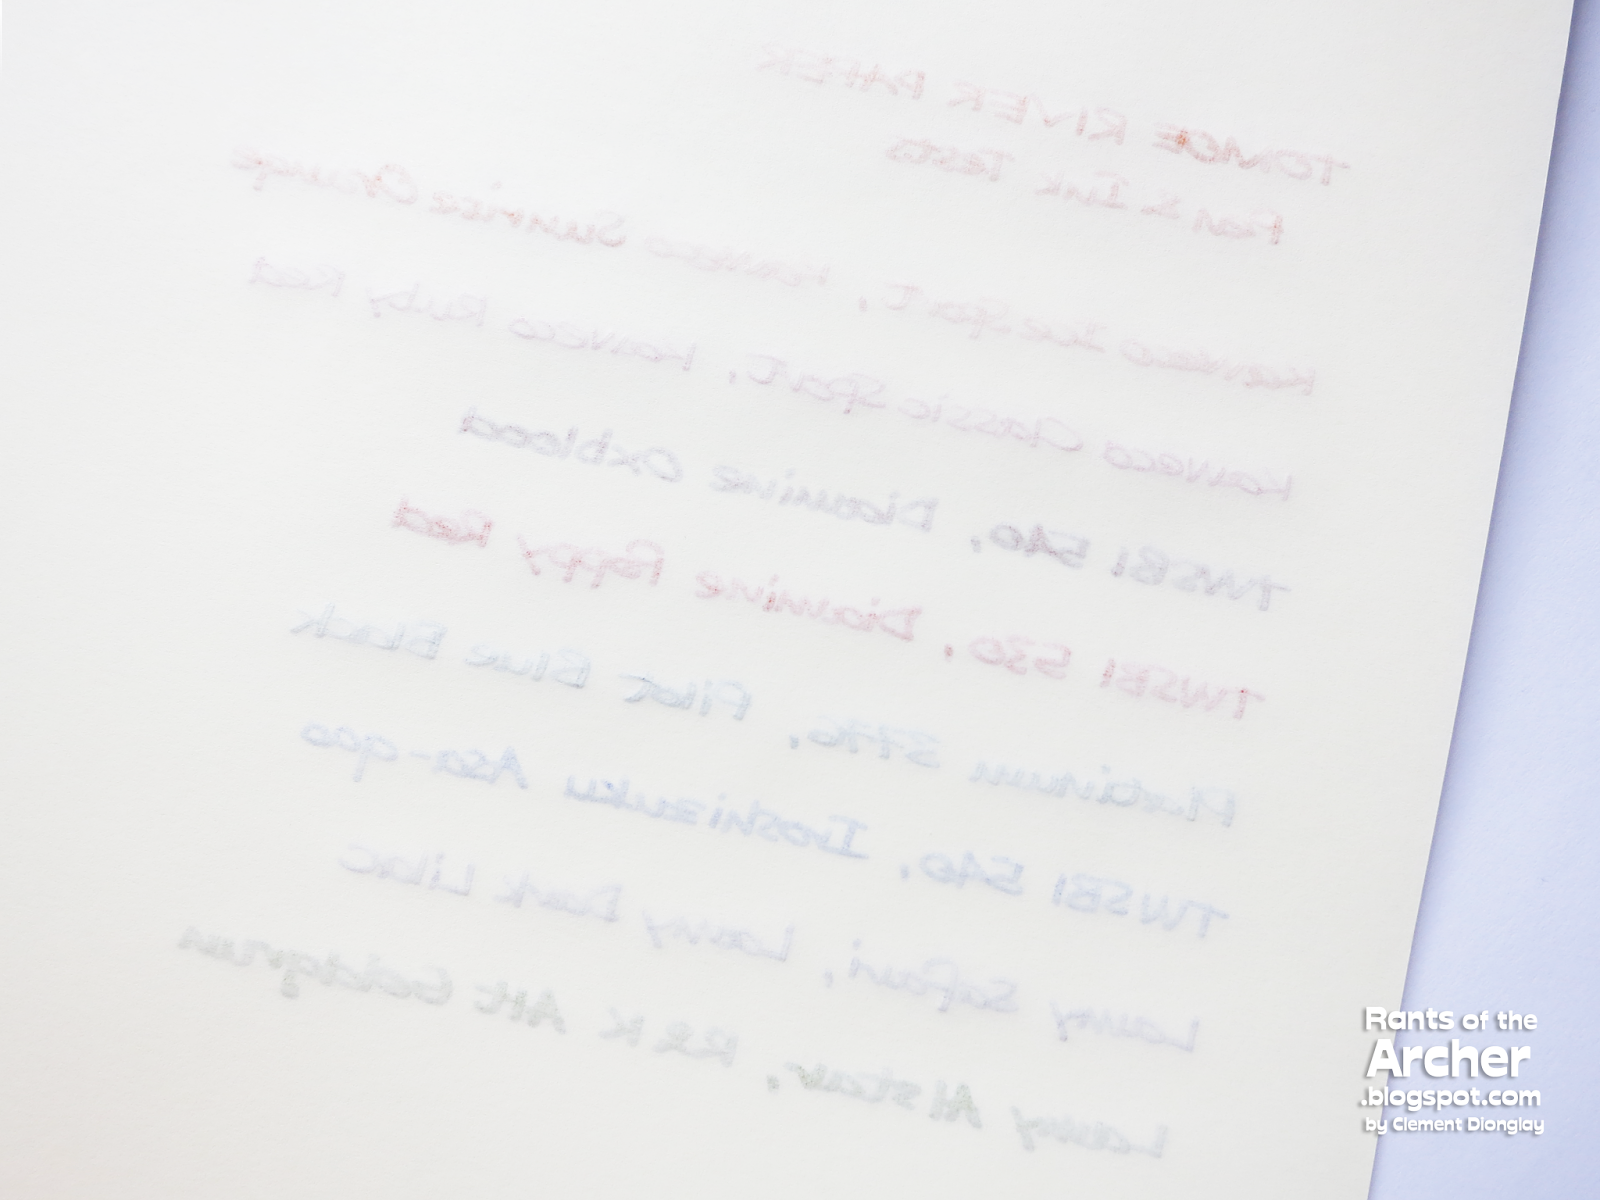 TOMOE RIVER PAPER
Pen & Ink Tests
Kaweco Ice Sport, Kaweco Sunrise Orange
Kaweco Classic Sport, Kaweco Ruby Red
TWSBI 540, Diamine Oxblood
TWSBI 530, Diamine Poppy Red
Platinum 3776, Pilot Blue Black
TWSBI 540, Iroshizuku Asa-gao
Lamy Safari, Lamy Dark Lilac
Lamy Al star, R&K Alt Goldgrun
Rants of the
Archer
.blogspot.com
by Clement Dionglay